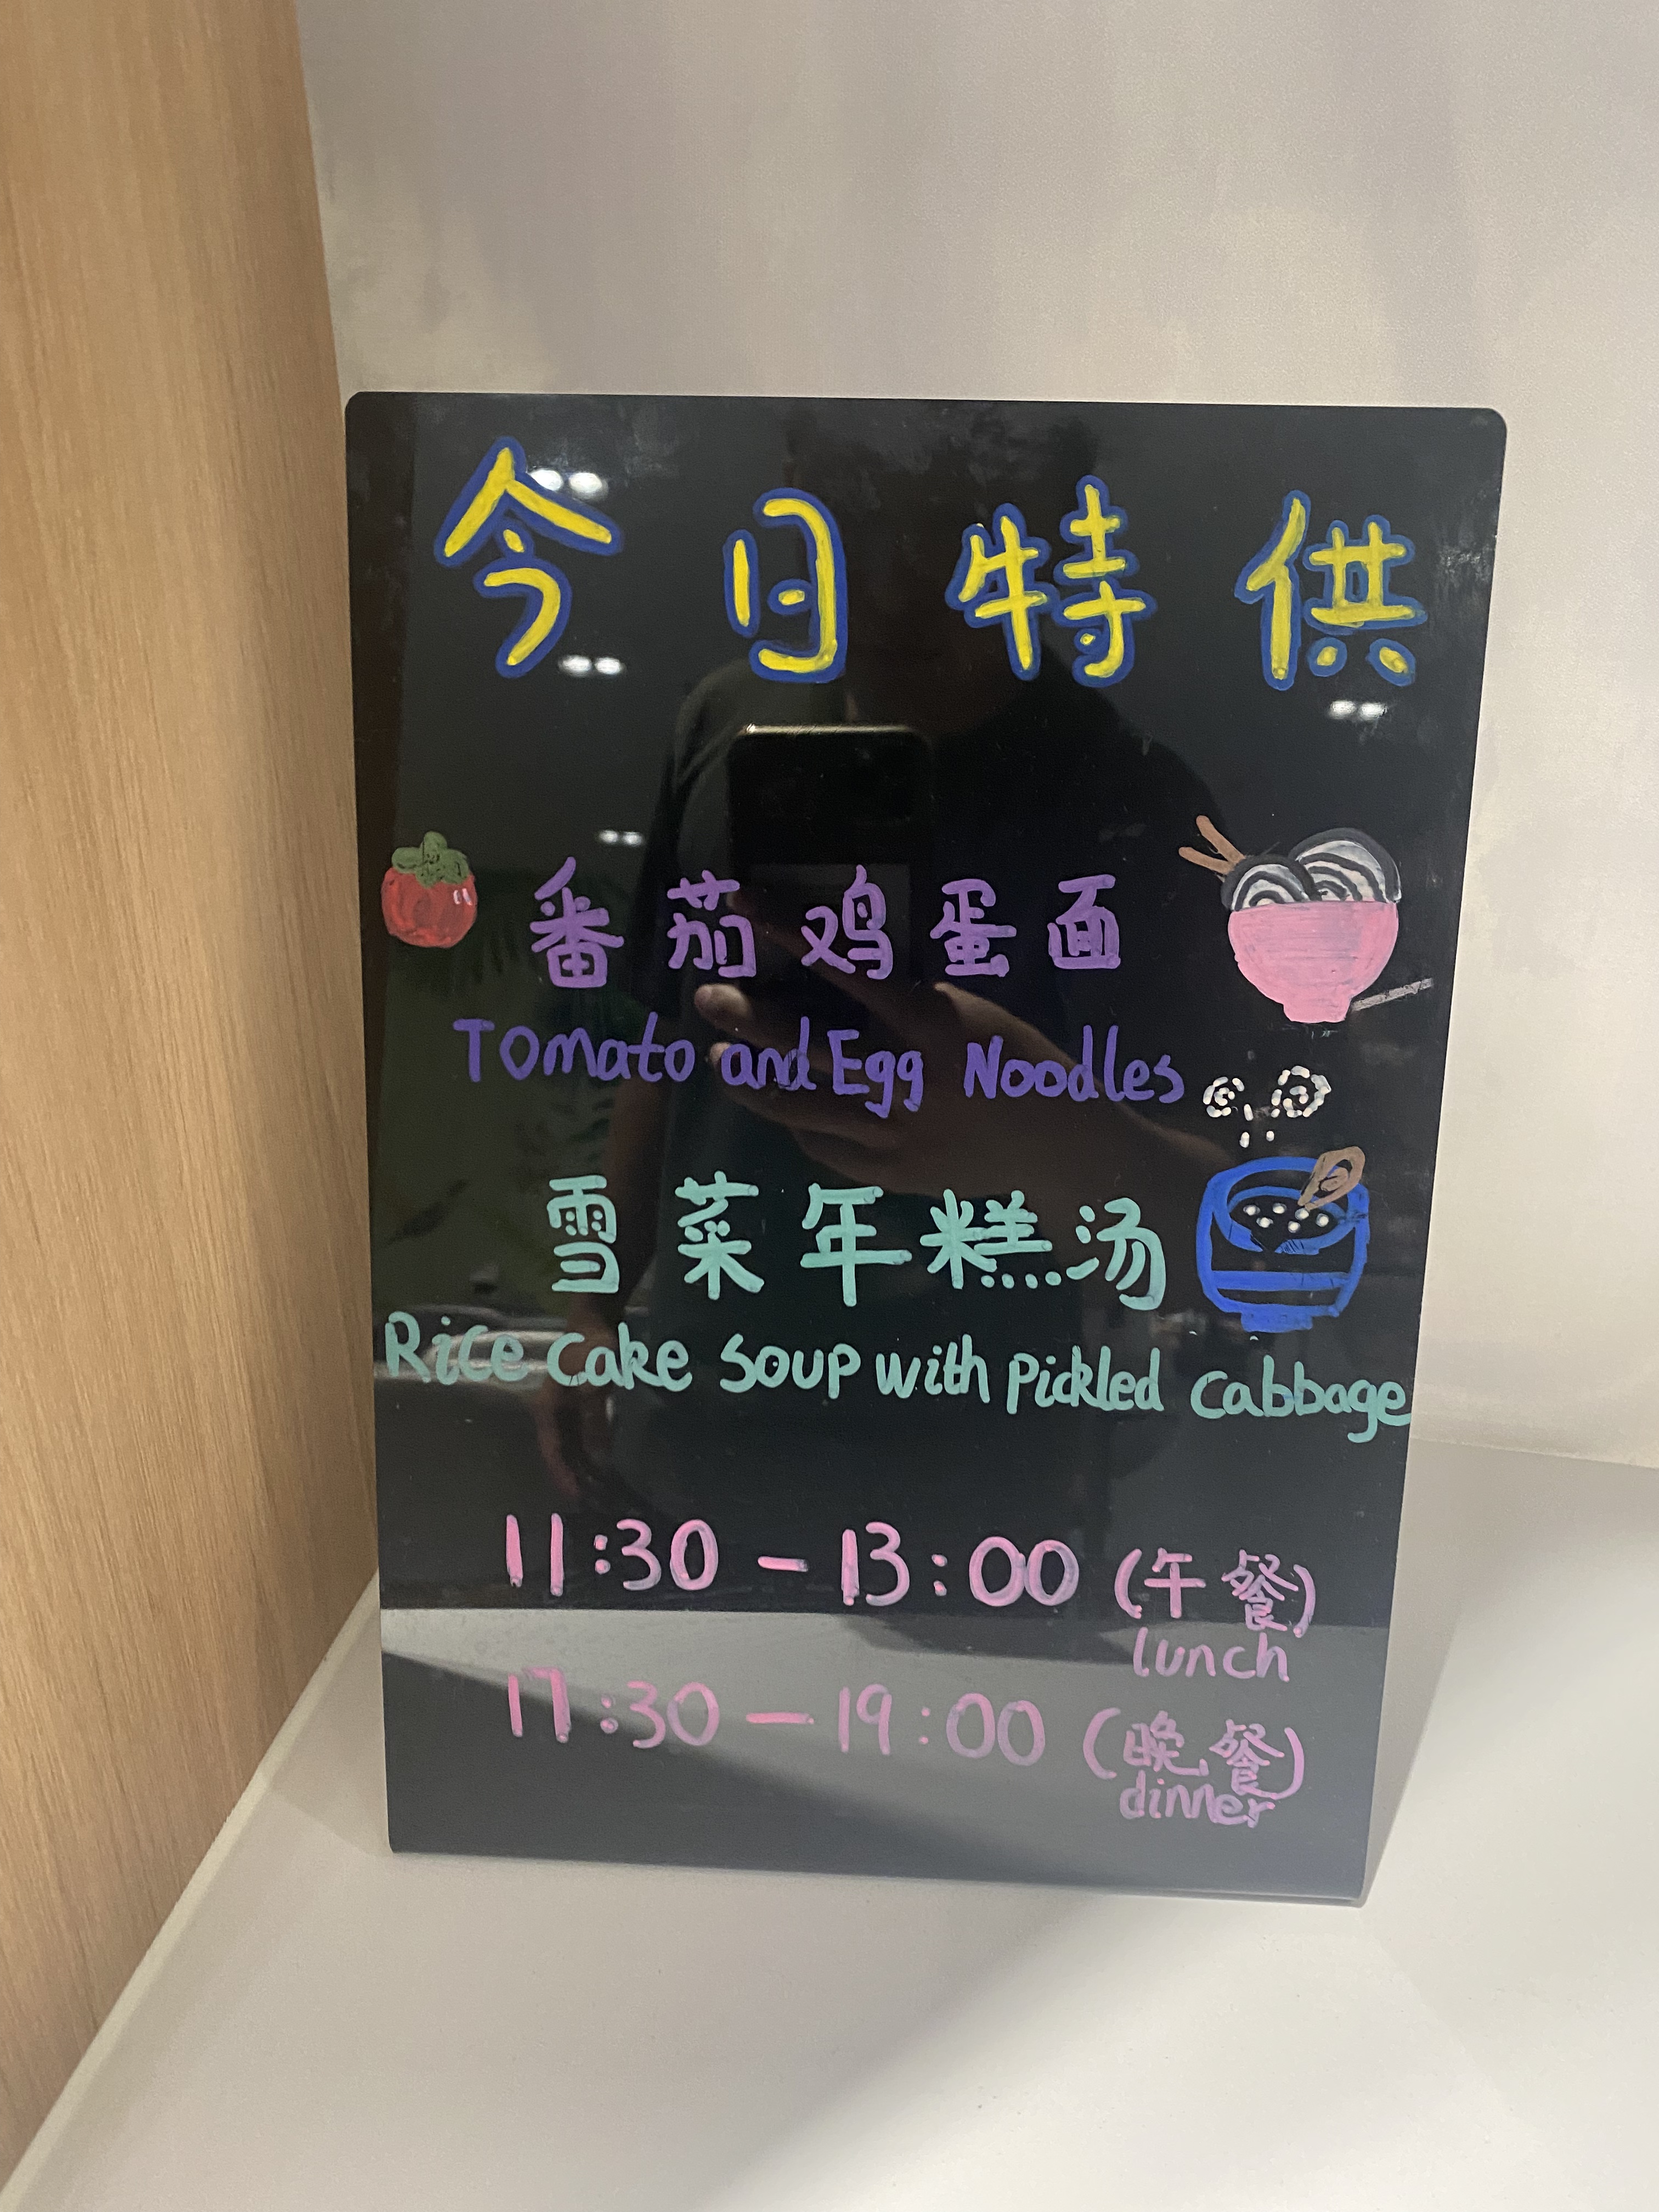 今日特供
番茄鸡蛋面
Tomato and Egg Noodles
雪菜年糕汤
Rice Cake Soup with Pickled Cabbage
11:30 - 13:00 (午餐)
lunch
17:30 - 19:00 (晚餐)
dinner